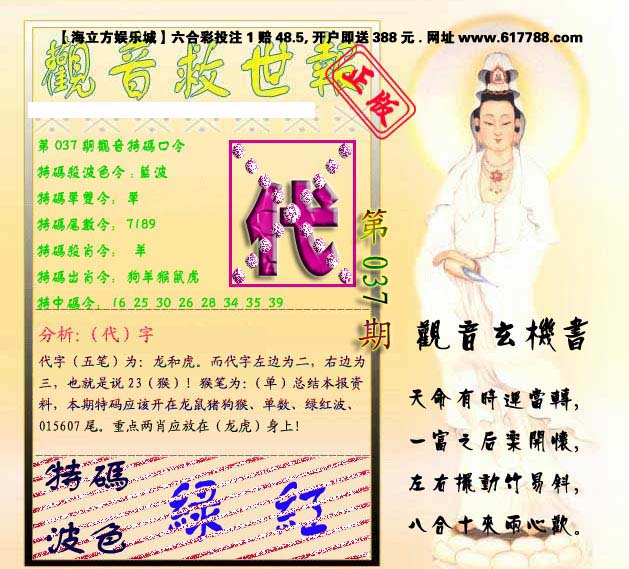 【海立方娱乐城】六合彩投注1赔48.5,开户即送388元.网址www.617788.com
觀音救世報
正版
第037期觀音特碼口令
特碼殺波色令:藍波
特碼單雙令: 單
特碼尾數令: 7189
特碼殺肖令: 羊
特碼出肖令: 狗羊猴鼠虎
特中碼令: 16 25 30 26 28 34 35 39
代
第037期
分析:(代)字
代字(五笔)为:龙和虎。而代字左边为二,右边为
三,也就是说23(猴)!猴笔为:(单)总结本报资
料,本期特码应该开在龙鼠猪狗猴、单数、绿红波、
015607尾。重点两肖应放在(龙虎)身上!
特碼
波色
綠 紅
觀音玄機書
天命有時運當轉,
一富之后樂開懷,
左右擺動竹易斜,
八合十來兩心歡。